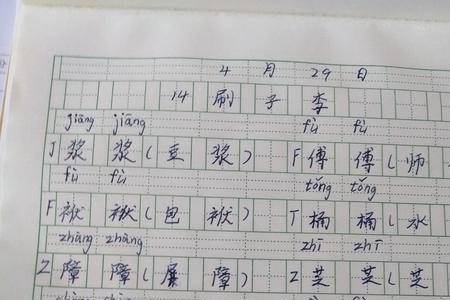 4月29日
14 刷子李
jiāng jiāng fù fù
J 浆 浆(豆浆) F 傅 傅(师
fù fù tǒng tǒng
F 袱 袱(包袱) T 桶 桶(水
zhàng zhàng zhī zhī
Z 障 障(屏障) Z 芝 芝(芝